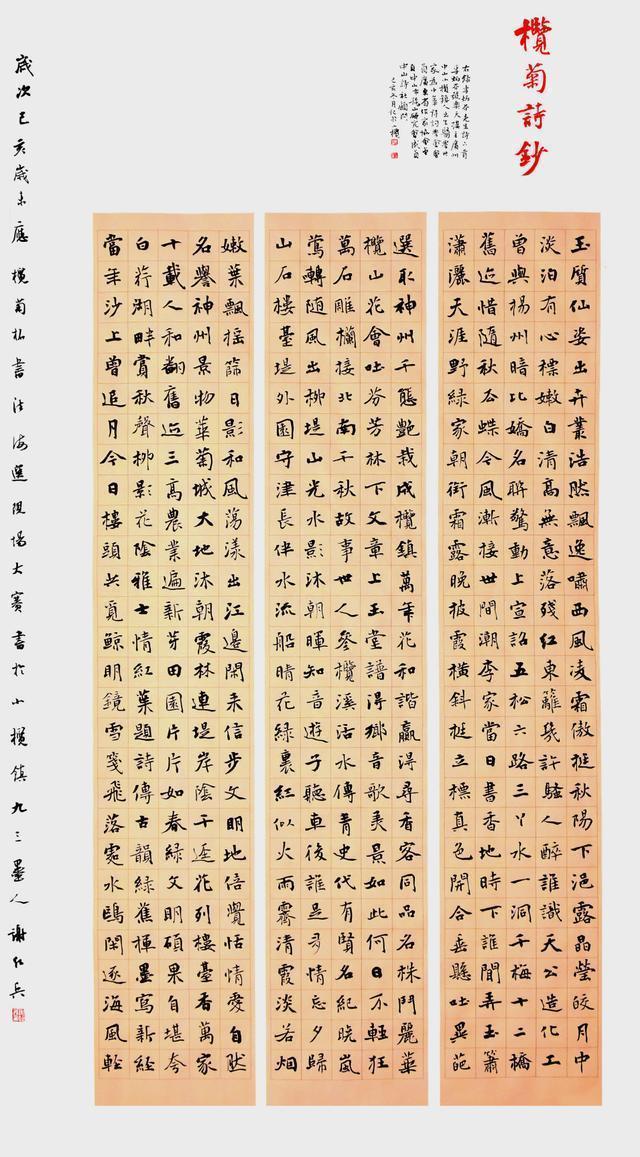 欖菊詩鈔
玉質仙姿出卉叢浩然飄逸嘯西風凌霜傲挺秋陽下浥露晶瑩皎月中
淡泊有心標嫩白清高無意落殘紅東籬幾許騷人醉誰識天公造化工
曾與楊州暗比嬌名聯驚動上宣詔五松六路三丫水一洞千梅十二橋
舊迹惜隨秋谷蝶令風漸接世間潮李家當日書香地時下誰聞弄玉簫
瀟灑天涯野綠家朝銜霜露晚披霞橫斜挺立標真色開合垂懸吐異葩
選取神州千態艷栽成欖鎮萬年花和諧贏得尋香客同品名株鬥麗華
欖山花會吐芬芳林下文章上玉堂譜得鄉音歌美景如此何日不輕狂
萬石雕欄接北南千秋故事世人參欖溪活水傳青史代有賢名紀曉嵐
鶯轉隨風出柳堤山光水影沐朝暉知音遊子聽車後誰是多情忘夕歸
山石樓臺堤外園守津長伴水流船晴花綠裏紅似火雨霽清霞淡若烟
嫩葉飄搖篩日影和風蕩漾出江邊閑來信步文明地倍覺怡情愛自然
名譽神州景物華菊城大地沐朝霞林連堤岸陰千逕花列樓臺香萬家
十載人和翻舊迹三高農業遍新芽田園片片如春綠文明碩果自堪夸
白荇湖畔賞秋聲柳影花陰雅士情紅葉題詩傳古韻綠蕉揮墨寫新經
當年沙上曾追月今日樓頭共覓鯨明鏡雪箋飛落處水鷗閑逐海風輕
歲次己亥歲末應欖菊杯書法海選現場大賽書於小欖鎮九三墨人謝仁兵